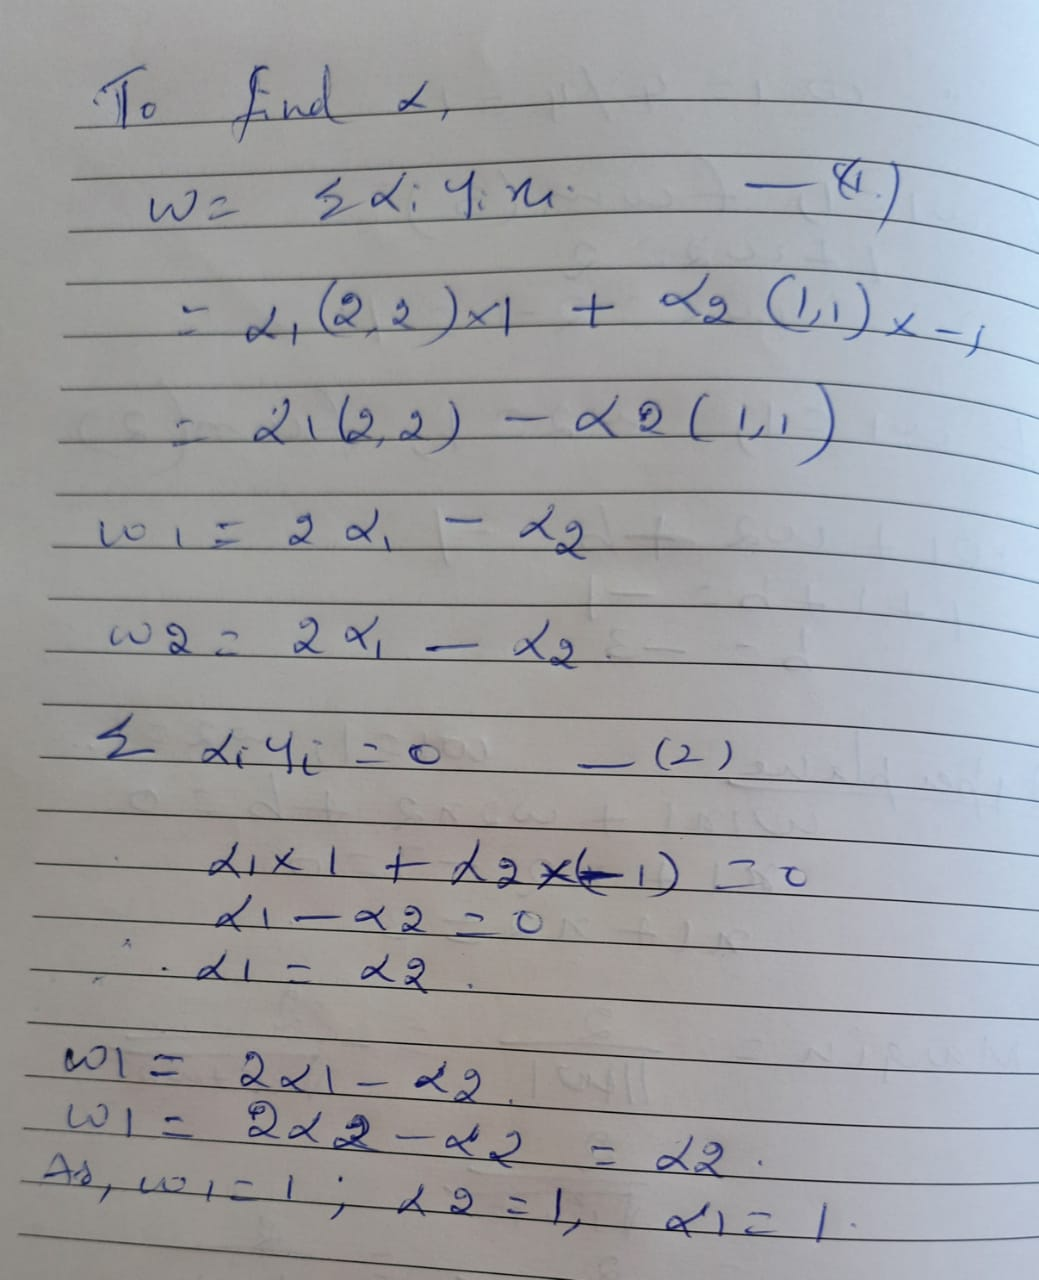 To find α1
w = Σ αi yi xi — (1)
= α1 (2,2) × 1 + α2 (1,1) × -1
= α1 (2,2) - α2 (1,1)
w1 = 2α1 - α2
w2 = 2α1 - α2
Σ αi yi = 0 — (2)
α1 × 1 + α2 × (-1) = 0
α1 - α2 = 0
∴ α1 = α2.
w1 = 2α1 - α2.
w1 = 2α2 - α2 = α2.
As, w1 = 1; α2 = 1, α1 = 1.